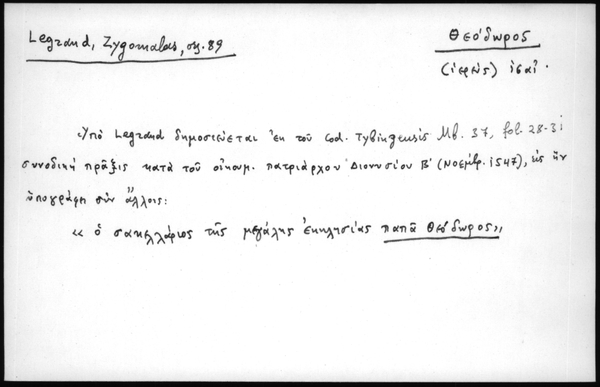 Legrand, Zygomalas, ση. 89
Θεόδωρος
(ἱερεὺς) ις αἰ.
Ὑπὸ Legrand δημοσιεύεται ἐκ τοῦ Cod. Tybingensis Mb. 37, fol. 28-31
συνοδικὴ πρᾶξις κατὰ τοῦ οἰκουμ. πατριάρχου Διονυσίου Β' (Νοέμβρ. 1547), εἰς ἣν
ὑπογράφει σὺν ἄλλοις:
« ὁ σακελλάριος τῆς μεγάλης ἐκκλησίας παπᾶ Θεόδωρος»